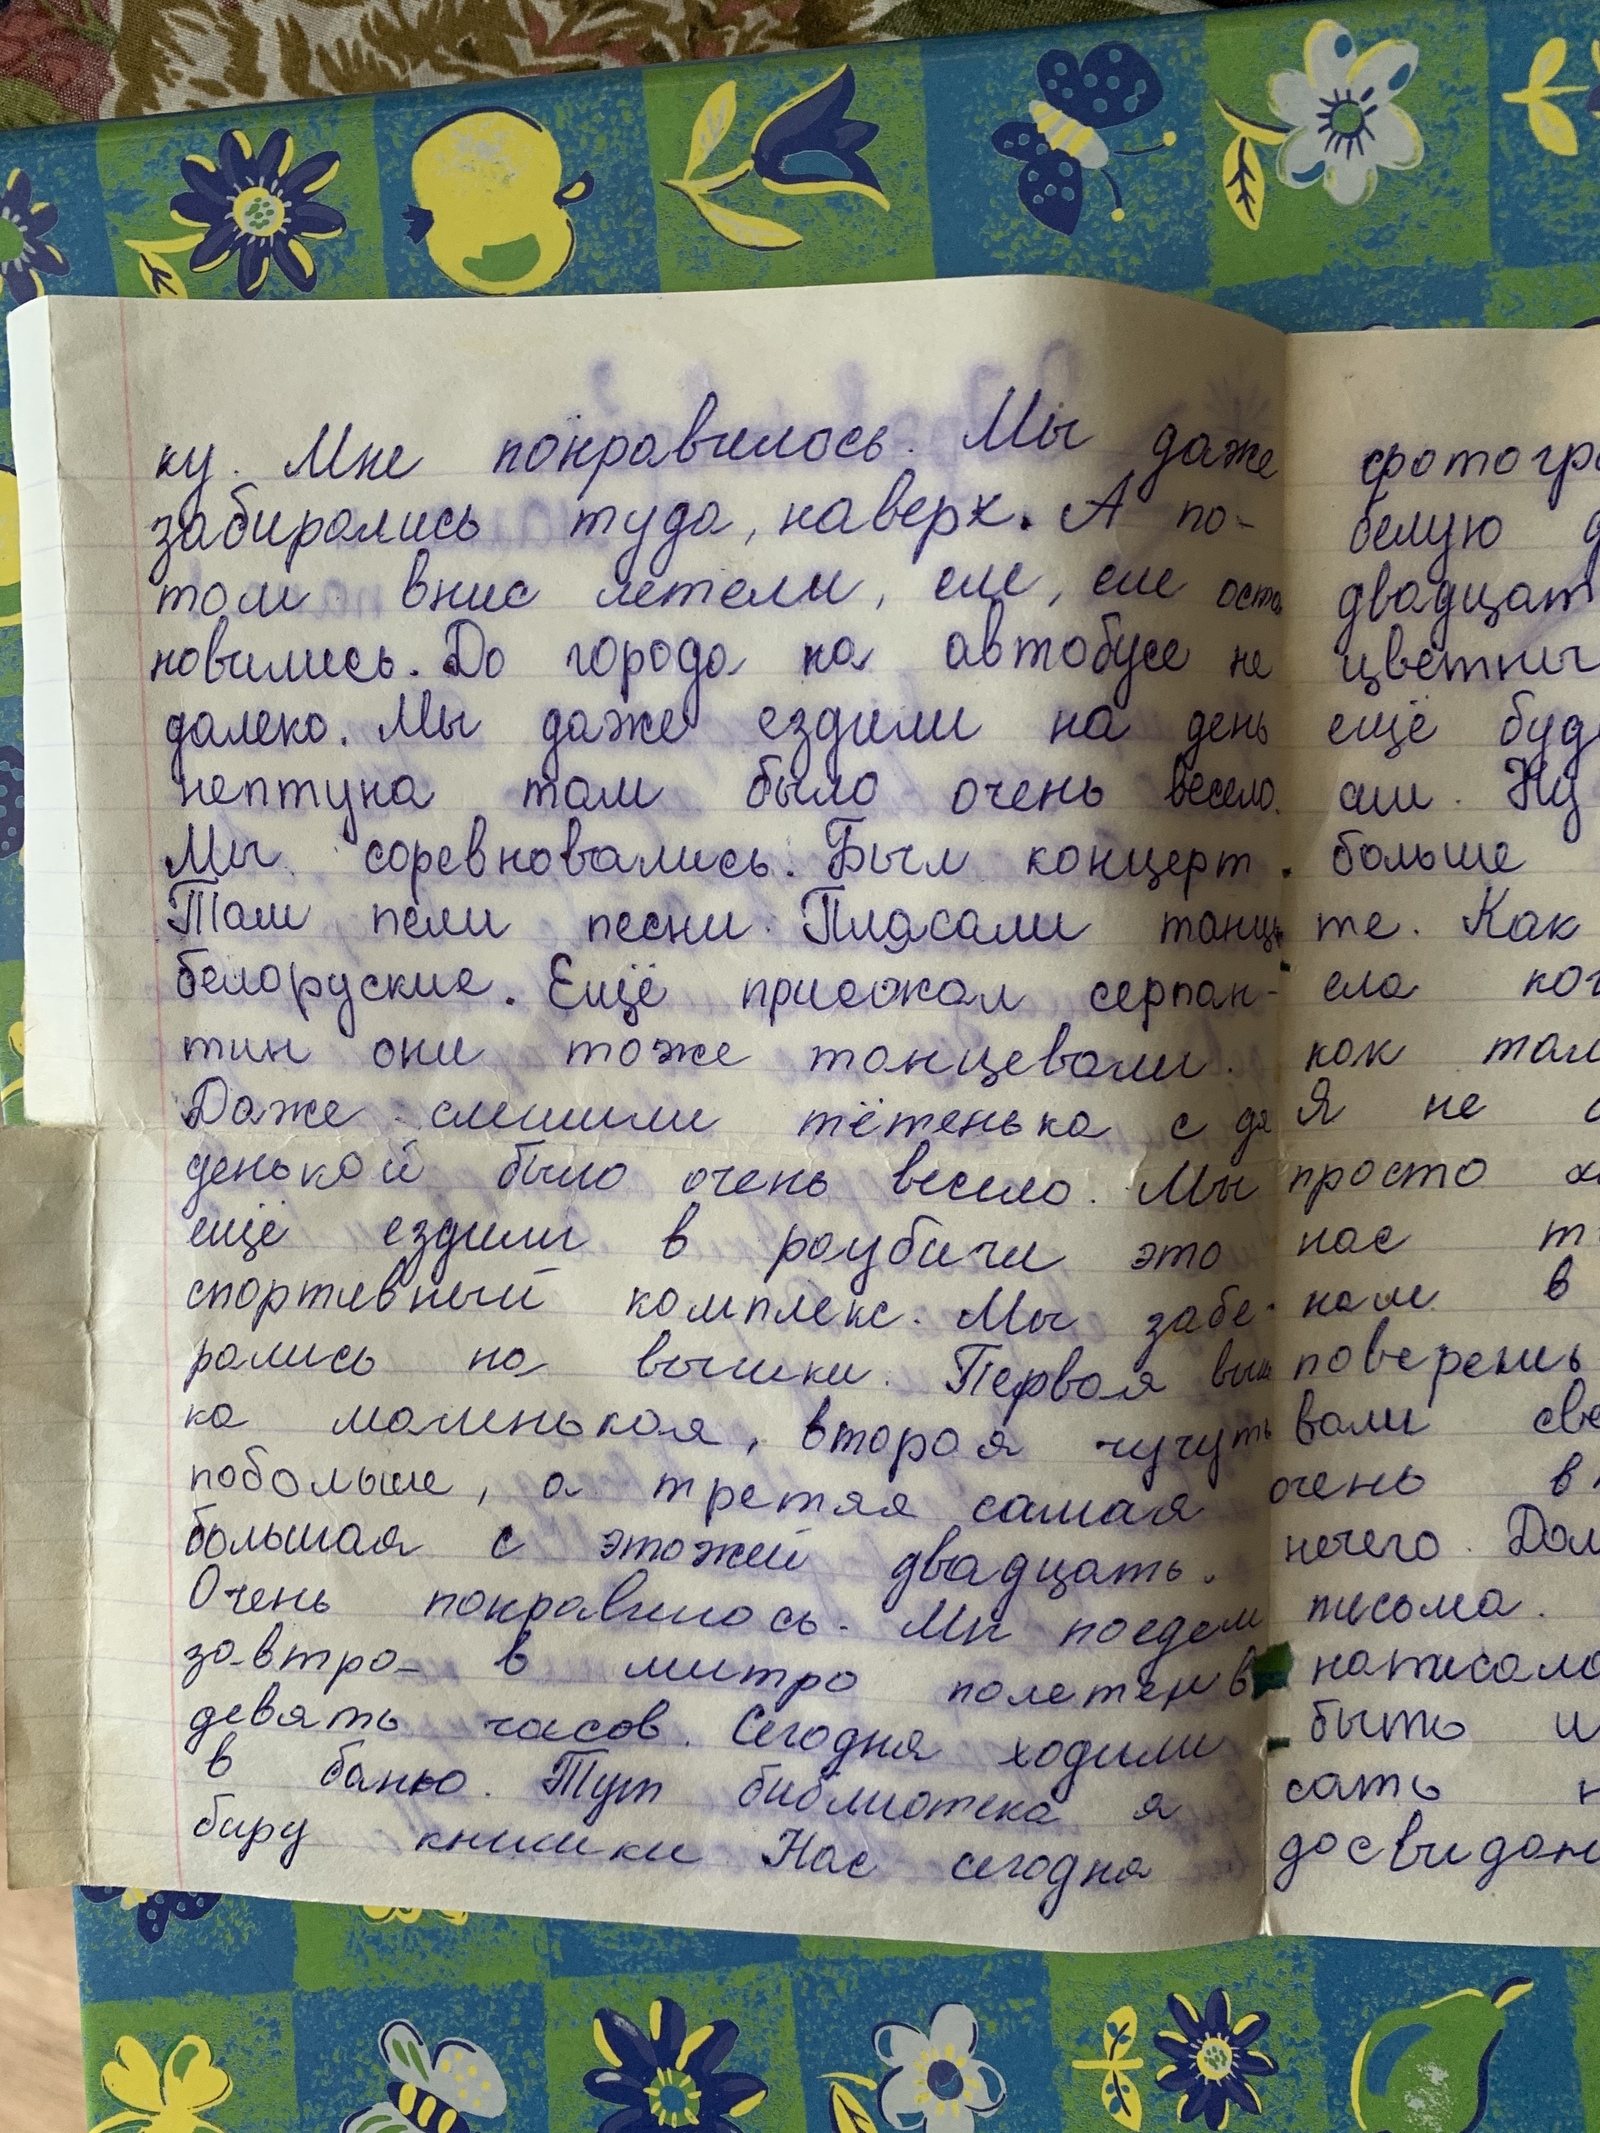 ку. Мне понравилось. Мы даже
забирались туда, наверх. А по-
том внис летели, еле, еле оста
новились. До города на автобусе не
далеко. Мы даже ездили на день
нептуна там было очень весело.
Мы соревновались. Был концерт.
Там пели песни. Плясали танцы
белоруские. Ещё приежал серпан-
тин они тоже танцевали.
Даже смешили тётенька с дя
денькой было очень весело. Мы
ещё ездили в раубичи это
спортивный комплекс. Мы забе-
рались на вышки. Первая выш
ка маленькая, вторая чучуть
побольше, а третяя самая
большая с этожей двадцать.
Очень понравилось. Мы поедем
завтра в митро полетен в
девять часов. Сегодня ходили
в баню. Тут библиотека я
биру книшки Нас сегодня
фотогра
белую
двадцат
цветны
ещё буд
аш. Ну
больше
те. Как
ела ког
как там
Я не
просто
нас
нам в
поверишь
вали све
очень
нечего. Дол
письма.
написала
быть
сать
досвидан